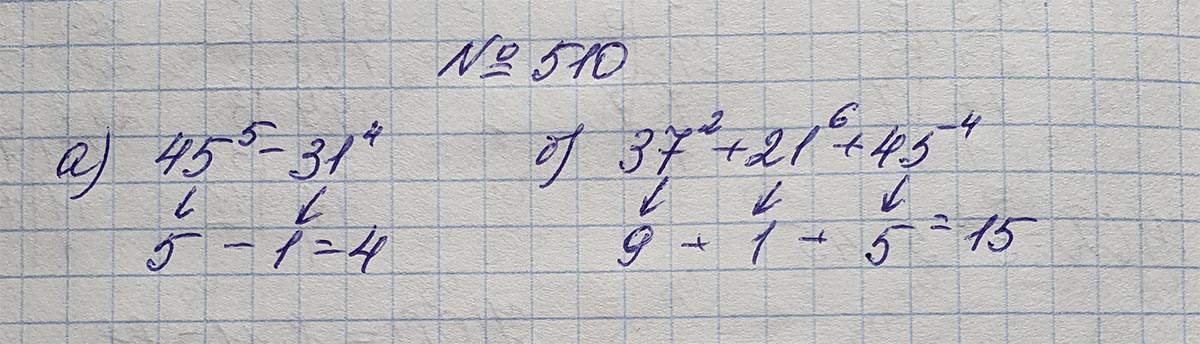 № 510
а) 45⁵ - 31⁴ б) 37² + 21⁶ + 45⁻⁴
↙ ↙ ↙ ↙ ↙
5 - 1 = 4 9 + 1 + 5 = 15